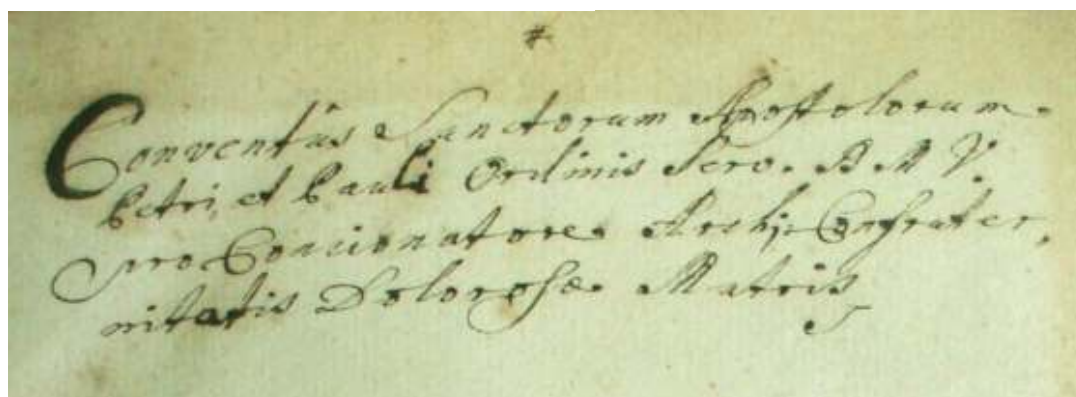 #
Conventûs Sanctorum Apostolorum
Petri, et Pauli Ordinis Serv. B. M. V.
pro Concionatore Archi-Confrater,
nitatis Dolorosæ Matris